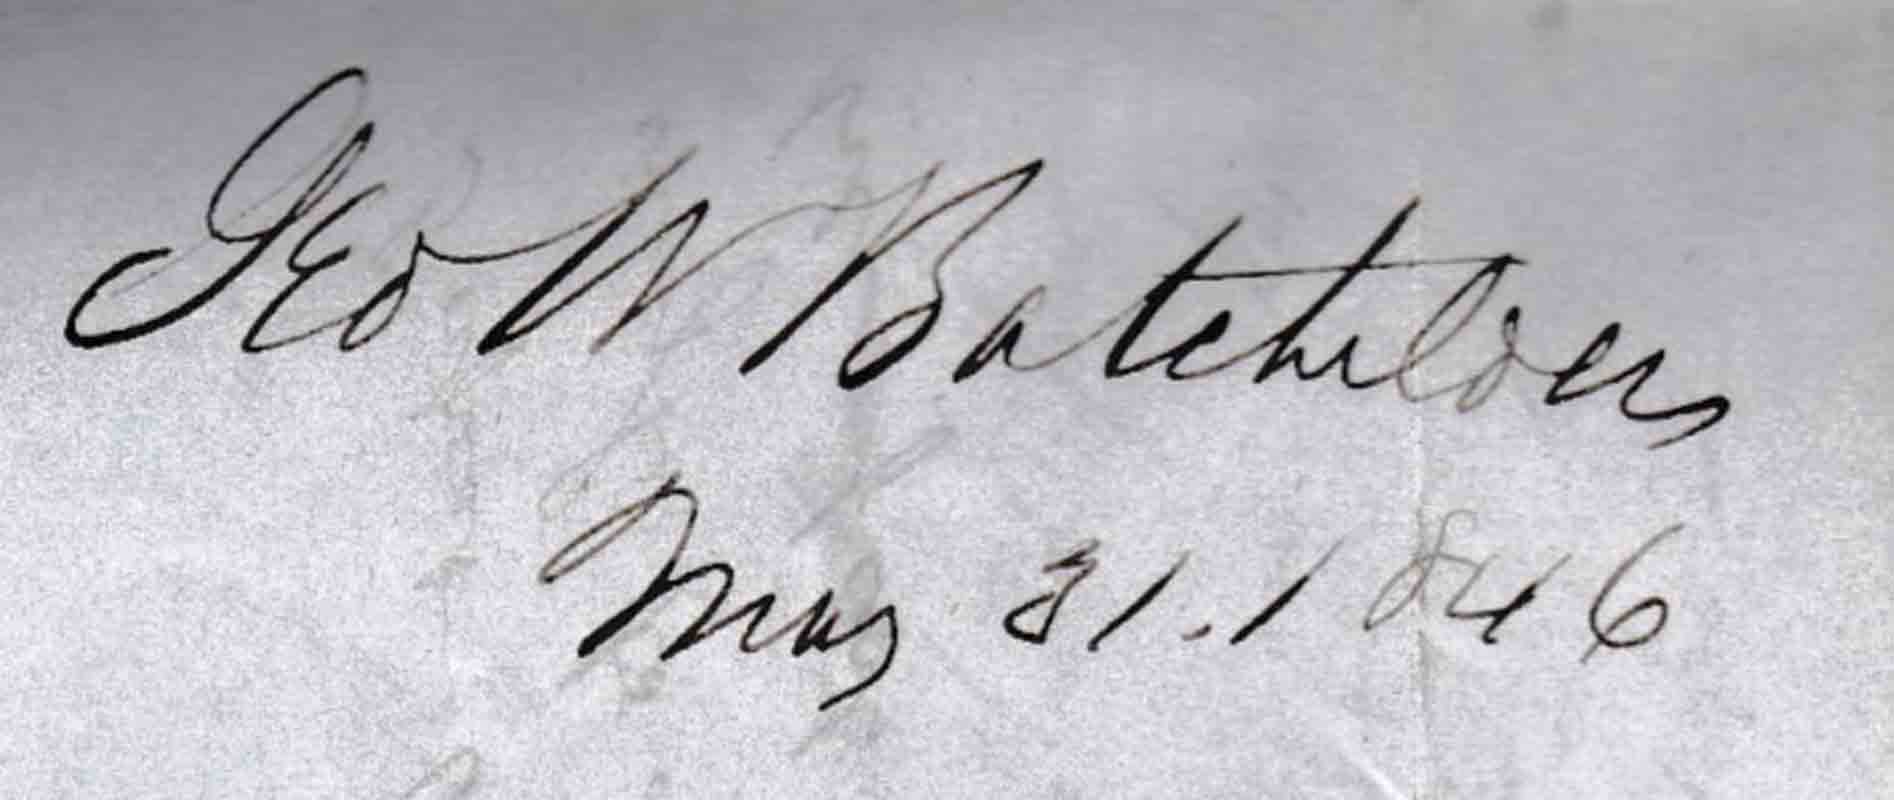 Geo W Batchelder
May 31. 1846